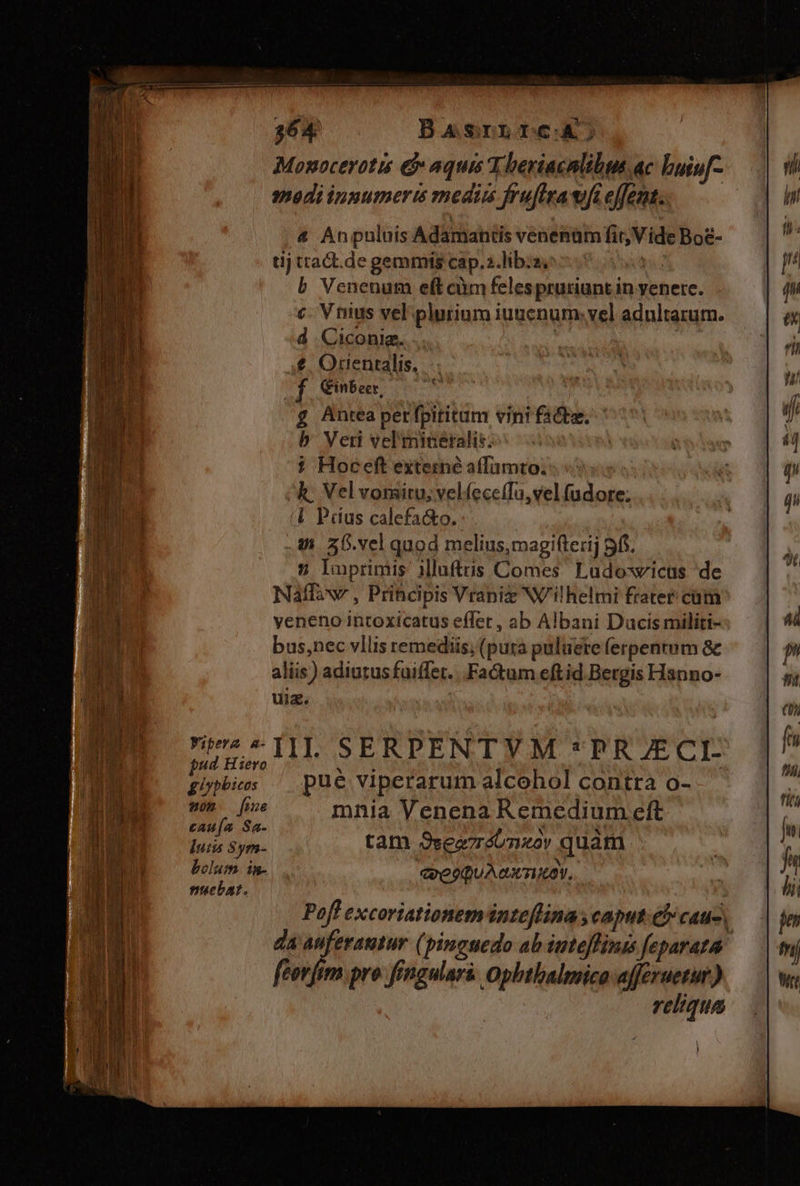 364 BASILICA
Monocerotis & aquis Theriacalibus ac huiuſ-
modi innumeris mediis fruſtra uſi eſſent.
a An puluis Adamantis venenum ſit, Vide Boë-
tij tract. de gemmis cap. 2. lib. 2.
b Venenum eſt cùm feles pruriunt in venere.
c Vnius vel plurium iuuenum, vel adultarum.
d Ciconiæ.
e Orientalis.
f Einbeer,
g Antea per ſpiritum vini factæ.
h Veri vel mineralis.
i Hoc eſt externè aſſumto.
k Vel vomitu, vel ſeceſſu, vel ſudore.
l Prius calefacto.
m ʒß. vel quod melius, magiſterij ℈ß.
n Imprimis illuſtris Comes Ludowicus de
Naſſaw, Principis Vraniæ Wilhelmi frater cùm
veneno intoxicatus eſſet, ab Albani Ducis militi-
bus, nec vllis remediis, (puta puluere ſerpentum &
aliis) adiutus fuiſſet. Factum eſt id Bergis Hanno-
uiæ.
Vipera a-
pud Hiero
glyphicos
non ſine
cauſa Sa-
lutis Sym-
bolum in-
nuebat.
III. SERPENTVM * PRÆCI-
puè viperarum alcohol contra o-
mnia Venena Remedium eſt
tam θεραπευτικὸν quàm
προφυλακτικόν.
Poſt excoriationem inteſtina, caput & cau-
da auferantur (pinguedo ab inteſtinis ſeparata
ſeorſim pro ſingulari Ophthalmico aſſeruetur)
reliqua